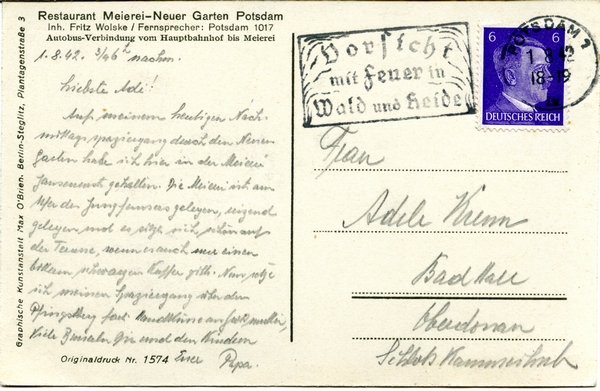 Restaurant Meierei-Neuer Garten Potsdam
Inh. Fritz Wolske / Fernsprecher: Potsdam 1017
Autobus-Verbindung vom Hauptbahnhof bis Meierei
1.8.42. nachm.
Liebste Adi!
Auf meinem heutigen Nach-
mittagsspaziergang durch den Neuen
Garten habe ich hier in der Meierei
Jausenrast gehalten. Die Meierei ist am
Ufer des Jungfernsees gelegen, reizend
gelegen und es sitzt sich schön auf
der Terasse, wenn es auch nur einen
bitteren schwarzen Kaffee gibt. Nun setze
ich meinen Spaziergang über den
Pfingstberg fort.
Viele Busserln Dir und den Kindern
Euer Papa.
Originaldruck Nr. 1574
Graphische Kunstanstalt Max O'Brien, Berlin-Steglitz, Plantagenstraße 3
Vorsicht
mit Feuer in
Wald und Heide
POTSDAM 1
1.8.42
18-19
6 6
DEUTSCHES REICH
Frau
Adele Krenn
Bad Hall
Oberdonau
Schloß